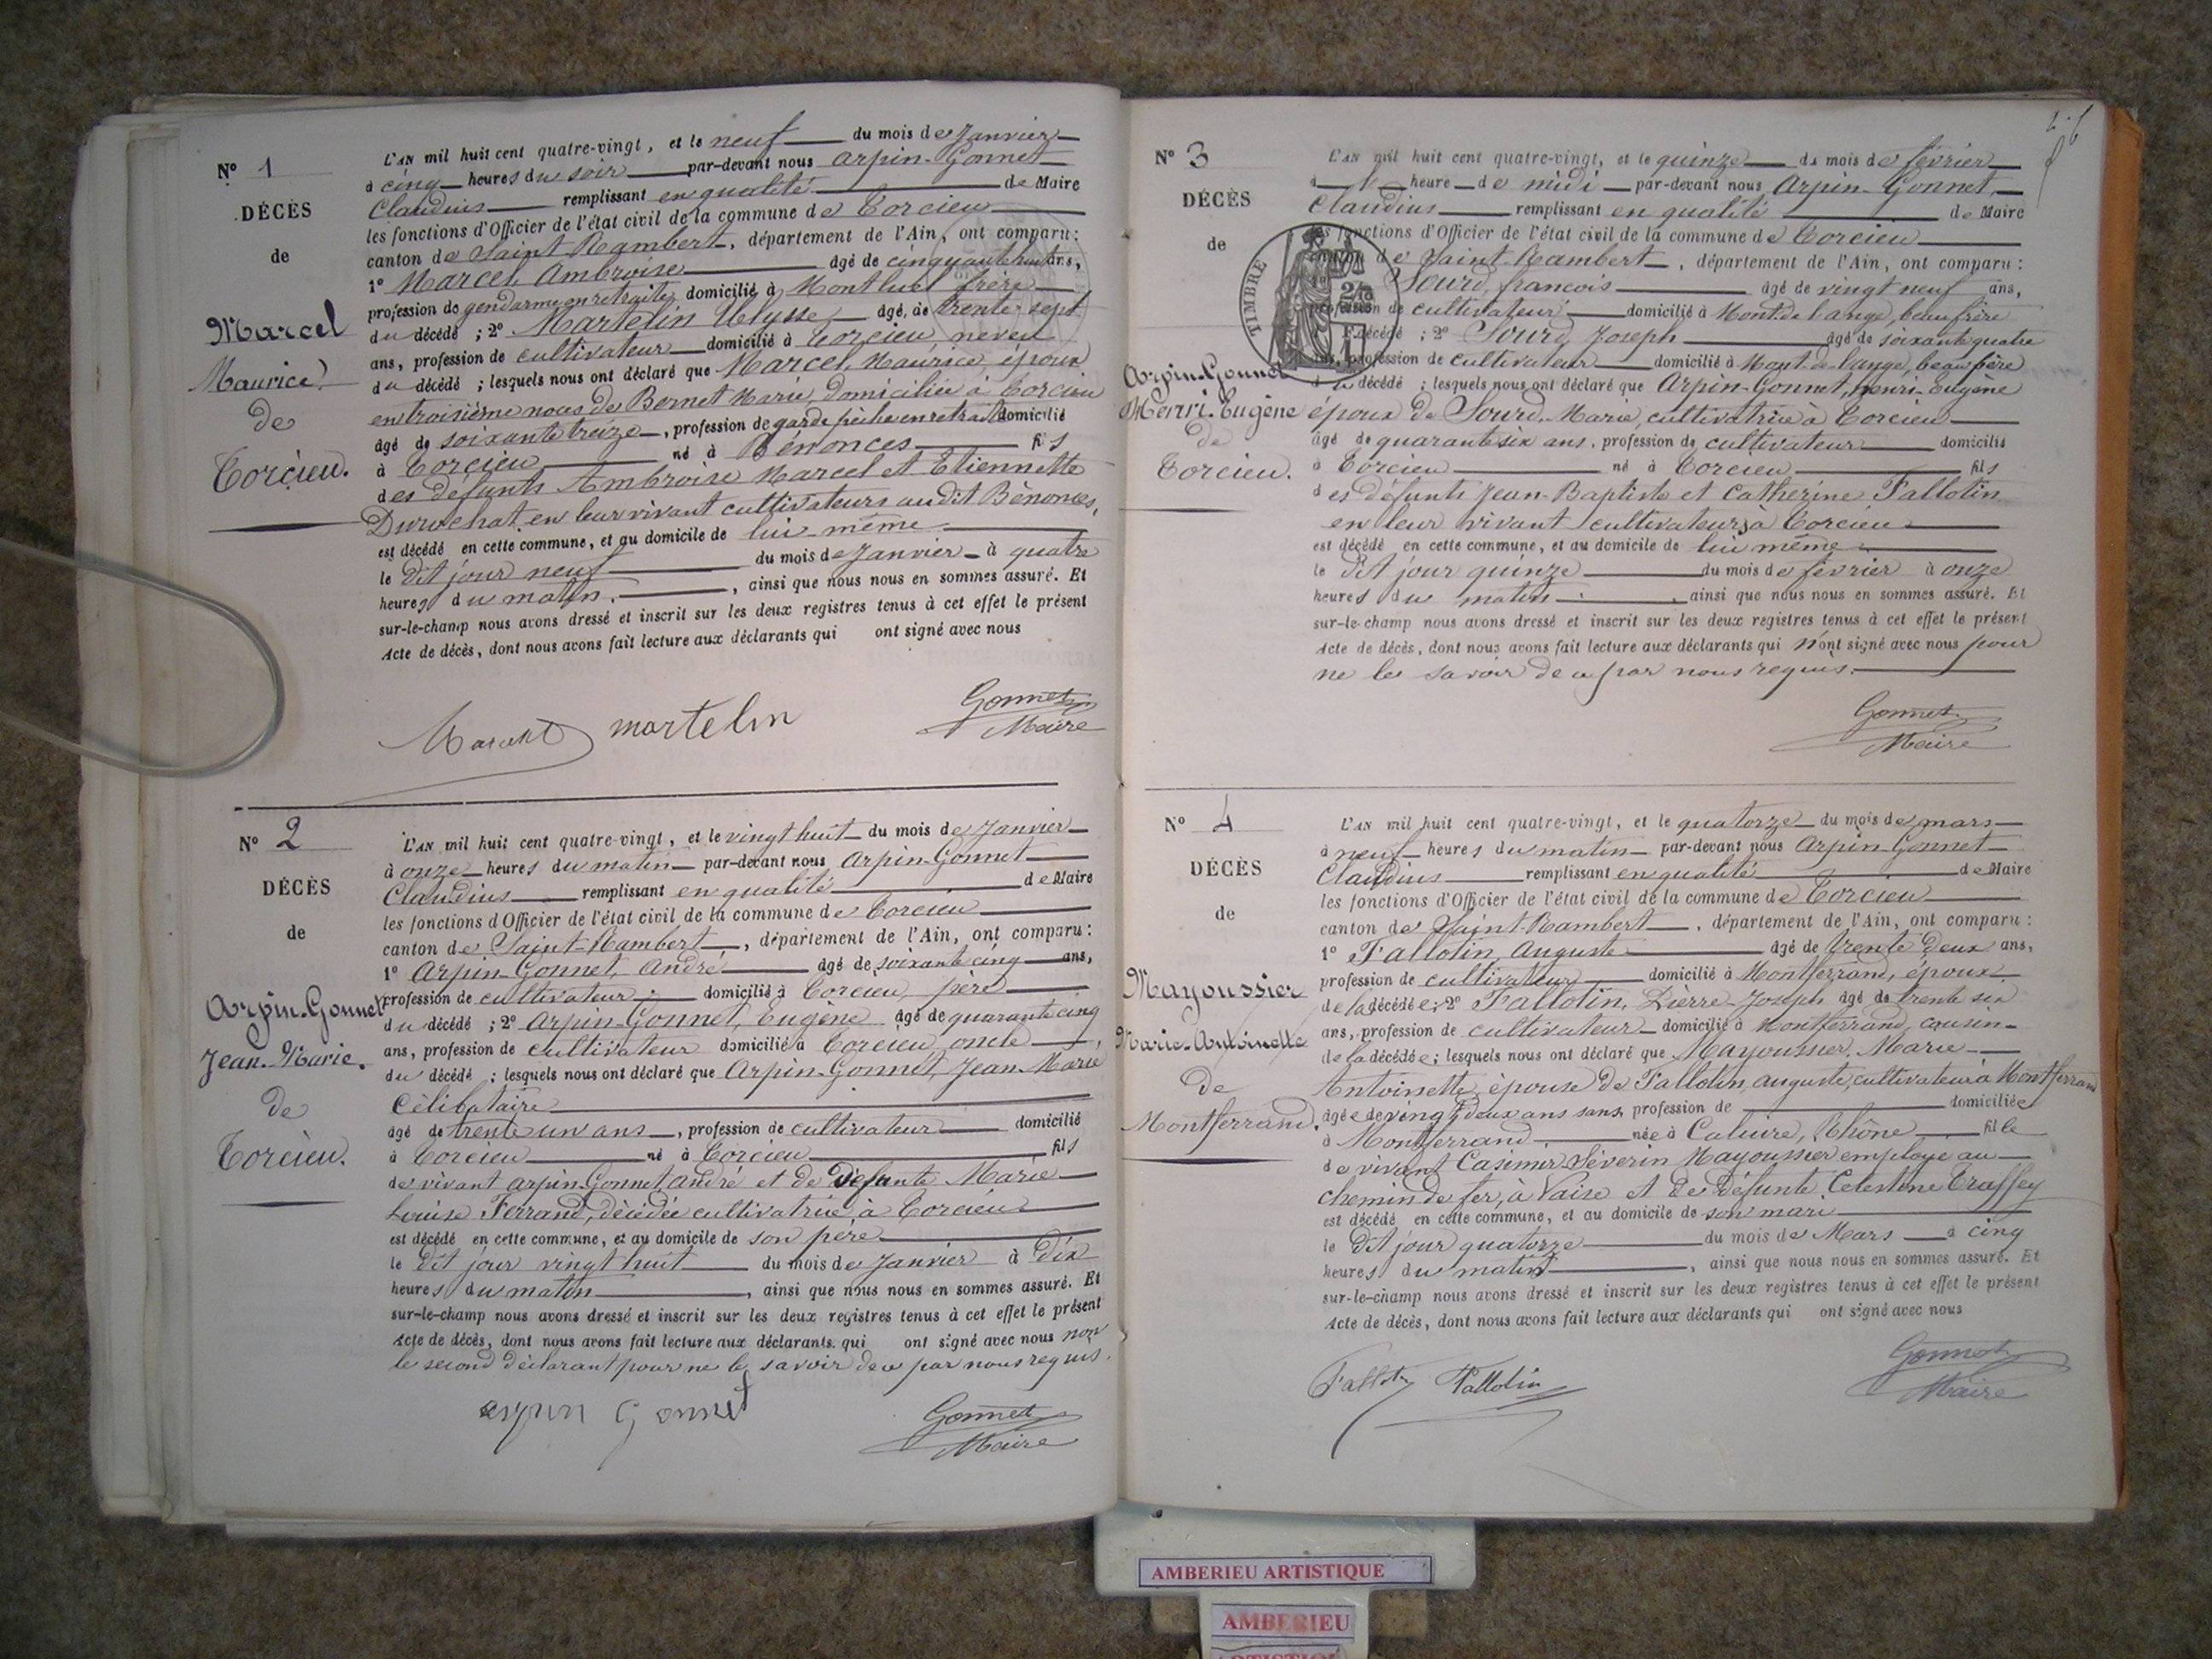 N° 1
DÉCÈS
de
Marcel
Maurice
de
Torcieu.
L'AN mil huit cent quatre-vingt, et le neuf du mois de Janvier
à cinq heures du soir par-devant nous Arpin-Gonnet
Claudius remplissant en qualité de Maire
les fonctions d'Officier de l'état civil de la commune de Torcieu
canton de Saint Rambert, département de l'Ain, ont comparu:
1° Marcel Ambroise âgé de cinquante huit ans,
profession de gendarme en retraite, domicilié à Montluel frère
du décédé ; 2° Martelin Ulysse âgé de trente-sept
ans, profession de cultivateur domicilié à Torcieu neveu
du décédé ; lesquels nous ont déclaré que Marcel, Maurice, époux
en troisième noces de Bornet Marie, Domiciliée à Torcieu
âgé de soixante treize, profession de garde pêche en retraite domicilié
à Torcieu né à Bénonces fils
des défunts Ambroise Marcel et Etiennette
Durochat, en leur vivant cultivateurs au dit Bénonces,
est décédé en cette commune, et au domicile de lui-même
le dit jour neuf du mois de Janvier à quatre
heures du matin, ainsi que nous nous en sommes assuré. Et
sur-le-champ nous avons dressé et inscrit sur les deux registres tenus à cet effet le présent
Acte de décès, dont nous avons fait lecture aux déclarants qui ont signé avec nous
martelin Gonnet
Maire
N° 2
DÉCÈS
de
Arpin-Gonnet
Jean-Marie.
de
Torcieu.
L'AN mil huit cent quatre-vingt, et le vingt huit du mois de Janvier
à onze heures du matin par-devant nous Arpin-Gonnet
Claudius remplissant en qualité de Maire
les fonctions d'Officier de l'état civil de la commune de Torcieu
canton de Saint-Rambert, département de l'Ain, ont comparu:
1° Arpin-Gonnet, André âgé de soixante cinq ans,
profession de cultivateur domicilié à Torcieu, père
du décédé ; 2° Arpin-Gonnet, Eugène âgé de quarante cinq
ans, profession de cultivateur domicilié à Torcieu, oncle
du décédé ; lesquels nous ont déclaré que Arpin-Gonnet, Jean-Marie
Célibataire
âgé de trente un ans, profession de cultivateur domicilié
à Torcieu né à Torcieu fils
de vivant Arpin-Gonnet André et de Défunte Marie
Louise Ferrand, décédée cultivatrice à Torcieu
est décédé en cette commune, et au domicile de son père
le dit jour vingt huit du mois de Janvier à Dix
heures du matin, ainsi que nous nous en sommes assuré. Et
sur-le-champ nous avons dressé et inscrit sur les deux registres tenus à cet effet le présent
Acte de décès, dont nous avons fait lecture aux déclarants qui ont signé avec nous non
le second déclarant pour ne le savoir de ce par nous requis.
arpin Gonnet Gonnet
Maire
N° 3
DÉCÈS
de
Arpin-Gonnet
Henri-Eugène
de
Torcieu.
TIMBRE
L'AN mil huit cent quatre-vingt, et le quinze du mois de février
à heure de midi par-devant nous Arpin-Gonnet
Claudius remplissant en qualité de Maire
les fonctions d'Officier de l'état civil de la commune de Torcieu
canton de Saint-Rambert, département de l'Ain, ont comparu:
1° Sourd, francois âgé de vingt neuf ans,
profession de cultivateur domicilié à Mont-de lange, beau frère
décédé ; 2° Sourd, Joseph âgé de soixante quatre
ans, profession de cultivateur domicilié à Mont-de-lange, beau père
du décédé ; lesquels nous ont déclaré que Arpin-Gonnet, henri-Eugène
époux de Sourd, Marie, cultivatrice à Torcieu
âgé de quarante six ans, profession de cultivateur domicilié
à Torcieu né à Torcieu fils
des défunts Jean-Baptiste et Catherine Fallotin
en leur vivant cultivateurs à Torcieu
est décédé en cette commune, et au domicile de lui même
le dit jour quinze du mois de février à onze
heures du matin, ainsi que nous nous en sommes assuré. Et
sur-le-champ nous avons dressé et inscrit sur les deux registres tenus à cet effet le présent
Acte de décès, dont nous avons fait lecture aux déclarants qui n'ont signé avec nous pour
ne le savoir de ce par nous requis.
Gonnet
Maire
N° 4
DÉCÈS
de
Mayoussier
Marie-Antoinette
de
Montferrand.
L'AN mil huit cent quatre-vingt, et le quatorze du mois de mars
à neuf heures du matin par-devant nous Arpin-Gonnet
Claudius remplissant en qualité de Maire
les fonctions d'Officier de l'état civil de la commune de Torcieu
canton de Saint-Rambert, département de l'Ain, ont comparu:
1° Fallotin, Auguste âgé de trente Deux ans,
profession de cultivateur domicilié à Montferrand, époux
de la décédée; 2° Fallotin, Pierre-Joseph âgé de trente six
ans, profession de cultivateur domicilié à Montferrand, cousin
de la décédée; lesquels nous ont déclaré que Mayoussier, Marie
Antoinette, épouse de Fallotin, auguste, cultivateur à Montferrand
âgée de vingt deux ans sans profession de domiciliée
à Montferrand née à Caluire, Rhône fille
de vivant Casimir Séverin Mayoussier employé au
chemin de fer, à Vaise et de Défunte Celestine Traffey
est décédé en cette commune, et au domicile de son mari
le dit jour quatorze du mois de Mars à cinq
heures du matin, ainsi que nous nous en sommes assuré. Et
sur-le-champ nous avons dressé et inscrit sur les deux registres tenus à cet effet le présent
Acte de décès, dont nous avons fait lecture aux déclarants qui ont signé avec nous
Fallotin Gonnet
Maire
AMBERIEU ARTISTIQUE
AMBERIEU
ARTISTIQUE